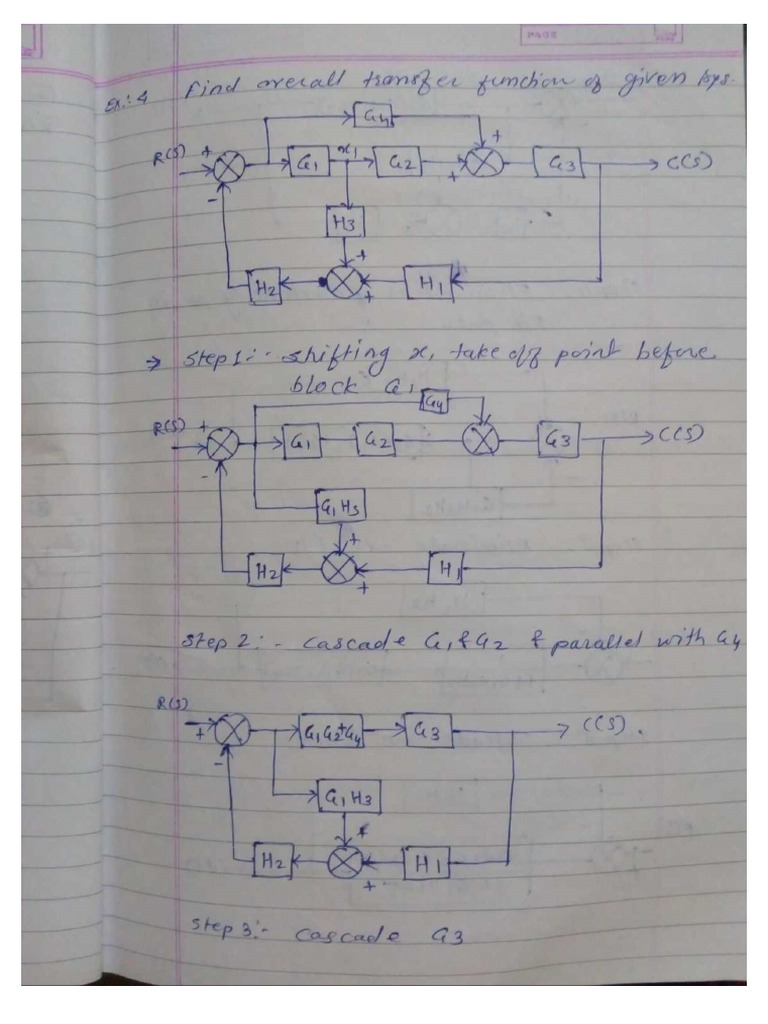 PAGE
Ex.: 4 Find overall transfer function of given sys.
G4
+ +
R(S) + G1 x1 G2 + G3 C(S)
-
H3
+
H2 + H1
→ Step 1:- Shifting x1 take off point before
block G1
G4
R(S) + G1 G2 G3 C(S)
-
G1H3
+
H2 + H1
Step 2:- Cascade G1 & G2 & parallel with G4
R(S)
+ G1G2+G4 G3 C(S).
-
G1H3
+
H2 + H1
Step 3:- Cascade G3